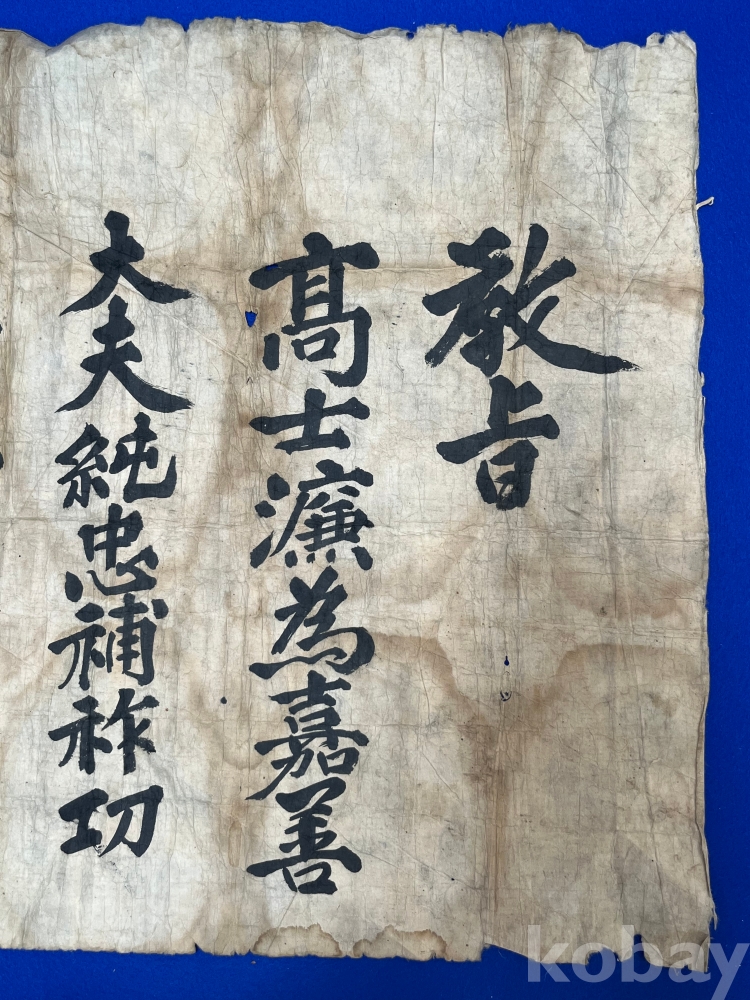 教旨
高士濂為嘉善
大夫純忠補祚功
kobay